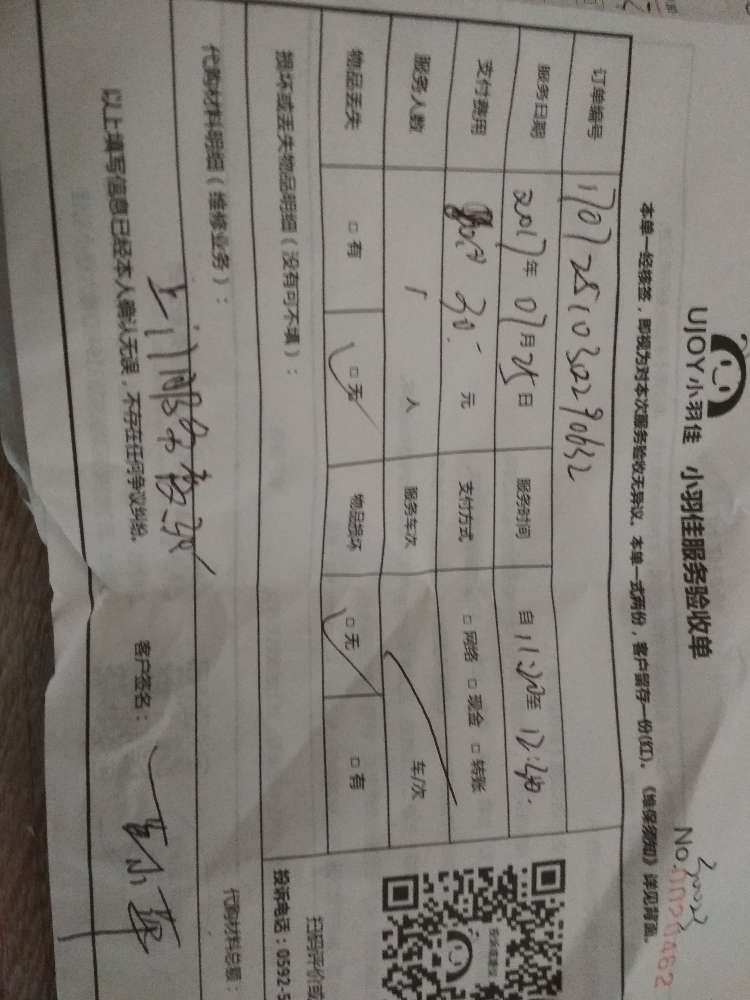 UJOY小羽佳 小羽佳服务验收单
No:0020482
本单一经核签，即视为对本次服务验收无异议。本单一式两份，客户留存一份(红)。《维保须知》详见背面。
订单编号
服务日期 2017年07月25日 服务时间 自11:30至12:30
支付费用 30 元 支付方式 □ 网络 □ 现金 □ 转账
服务人数 1 人 服务车次 车/次
物品丢失 □ 有 □ 无 物品损坏 □ 无 □ 有
损坏或丢失物品明细（没有可不填）：
代购材料明细（维修业务）：
代购材料总额：
上门服务费30
以上填写信息已经本人确认无误，不存在任何争议纠纷。
客户签名：
投诉建议
扫码评价或
投诉电话：0592-5